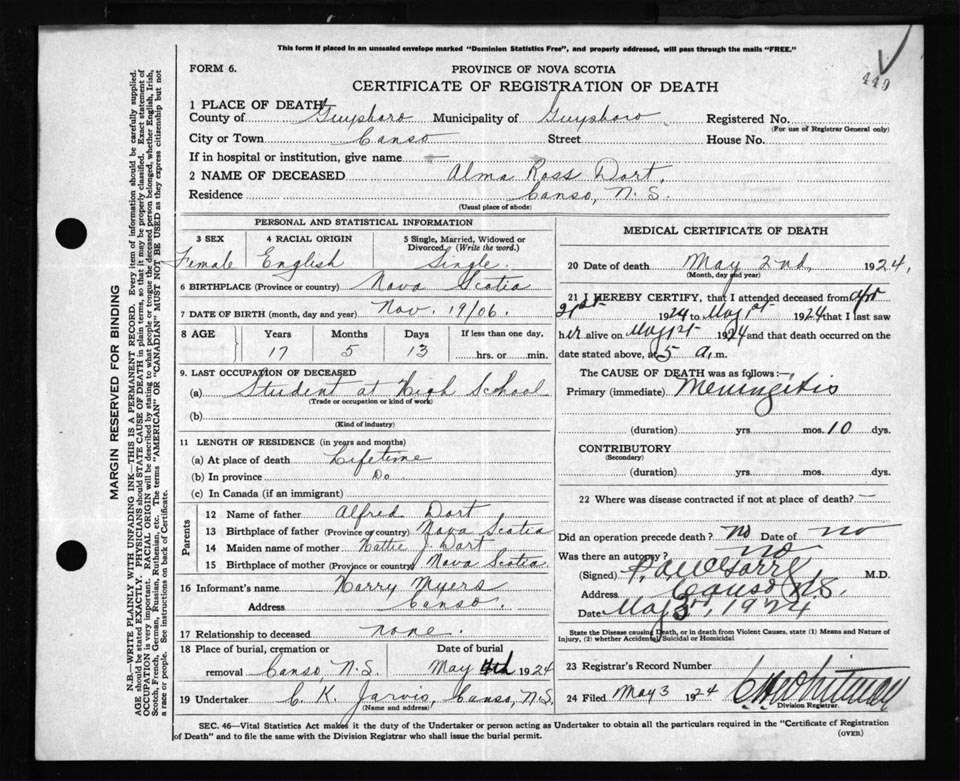 This form if placed in an unsealed envelope marked "Dominion Statistics Free", and properly addressed, will pass through the mails "FREE."
FORM 6.
PROVINCE OF NOVA SCOTIA
440
CERTIFICATE OF REGISTRATION OF DEATH
1 PLACE OF DEATH
County of Guysboro Municipality of Guysboro Registered No.
(For use of Registrar General only)
City or Town Canso Street House No.
If in hospital or institution, give name —
2 NAME OF DECEASED Alma Ross Dort.
Residence Canso, N. S.
(Usual place of abode)
PERSONAL AND STATISTICAL INFORMATION
3 SEX 4 RACIAL ORIGIN 5 Single, Married, Widowed or Divorced. (Write the word.)
Female English Single.
6 BIRTHPLACE (Province or country) Nova Scotia
7 DATE OF BIRTH (month, day and year) Nov. 19/06.
8 AGE Years Months Days If less than one day,
17 5 13 hrs. or min.
9. LAST OCCUPATION OF DECEASED
(a) Student at High School
(Trade or occupation or kind of work)
(b)
(Kind of industry)
11 LENGTH OF RESIDENCE (in years and months)
(a) At place of death Lifetime
(b) In province Do
(c) In Canada (if an immigrant)
Parents
12 Name of father Alfred Dort
13 Birthplace of father (Province or country) Nova Scotia
14 Maiden name of mother Hattie J Dort
15 Birthplace of mother (Province or country) Nova Scotia
16 Informant's name Harry Myers
Address Canso.
17 Relationship to deceased none.
18 Place of burial, cremation or removal Canso, N.S. Date of burial May 4th 1924
19 Undertaker C. K. Jarvis, Canso, N.S.
(Name and address)
MEDICAL CERTIFICATE OF DEATH
20 Date of death May 2nd, 1924.
(Month, day and year)
21 I HEREBY CERTIFY, that I attended deceased from Apr
21st 1924 to May 1st 1924 that I last saw
her alive on May 1st 1924 and that death occurred on the
date stated above, at 5 a.m.
The CAUSE OF DEATH was as follows:—
Primary (immediate) Meningitis
(duration) yrs. mos. 10 dys.
CONTRIBUTORY
(Secondary)
(duration) yrs. mos. dys.
22 Where was disease contracted if not at place of death? —
Did an operation precede death? No Date of no
Was there an autopsy? no
(Signed) M.D.
Address Canso N.S.
Date May 3rd, 1924
State the Disease causing Death, or in death from Violent Causes, state (1) Means and Nature of
Injury, (2) whether Accidental Suicidal or Homicidal
23 Registrar's Record Number
24 Filed May 3 1924 Whitman
Division Registrar.
SEC. 46—Vital Statistics Act makes it the duty of the Undertaker or person acting as Undertaker to obtain all the particulars required in the "Certificate of Registration
of Death" and to file the same with the Division Registrar who shall issue the burial permit.
(OVER)
MARGIN RESERVED FOR BINDING
N.B.—WRITE PLAINLY WITH UNFADING INK—THIS IS A PERMANENT RECORD. Every item of information should be carefully supplied.
AGE should be stated EXACTLY. PHYSICIANS should STATE CAUSE OF DEATH in plain terms, so that it may be properly classified. Exact statement of
OCCUPATION is very important. RACIAL ORIGIN will be described by stating to what people or tongue the deceased person belonged, whether English, Irish,
Scotch, French, German, Russian, Ruthenian, etc. The terms "AMERICAN" OR "CANADIAN" MUST NOT BE USED as they express citizenship but not
a race or people. See instructions on back of Certificate.